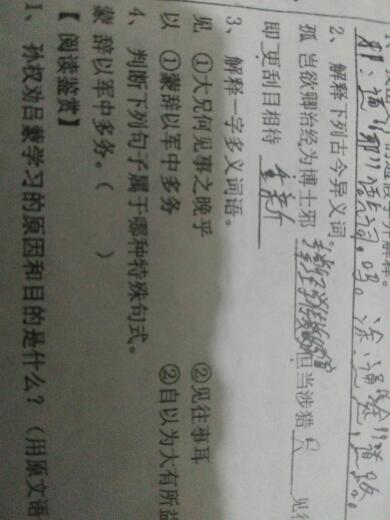 邪：通"耶"语气词。吗。 涂：通"途"道路。
2、解释下列古今异义词。
孤 岂欲卿治经为博士邪 但当涉猎 只 见往
即更刮目相待 重新
3、解释一字多义词语。
见 ①大兄何见事之晚乎 ②见往事耳
以 ①蒙辞以军中多务 ②自以为大有所益
4、判断下列句子属于哪种特殊句式。
蒙辞以军中多务。（ ）
【阅读鉴赏】
1、孙权劝吕蒙学习的原因和目的是什么？（用原文语